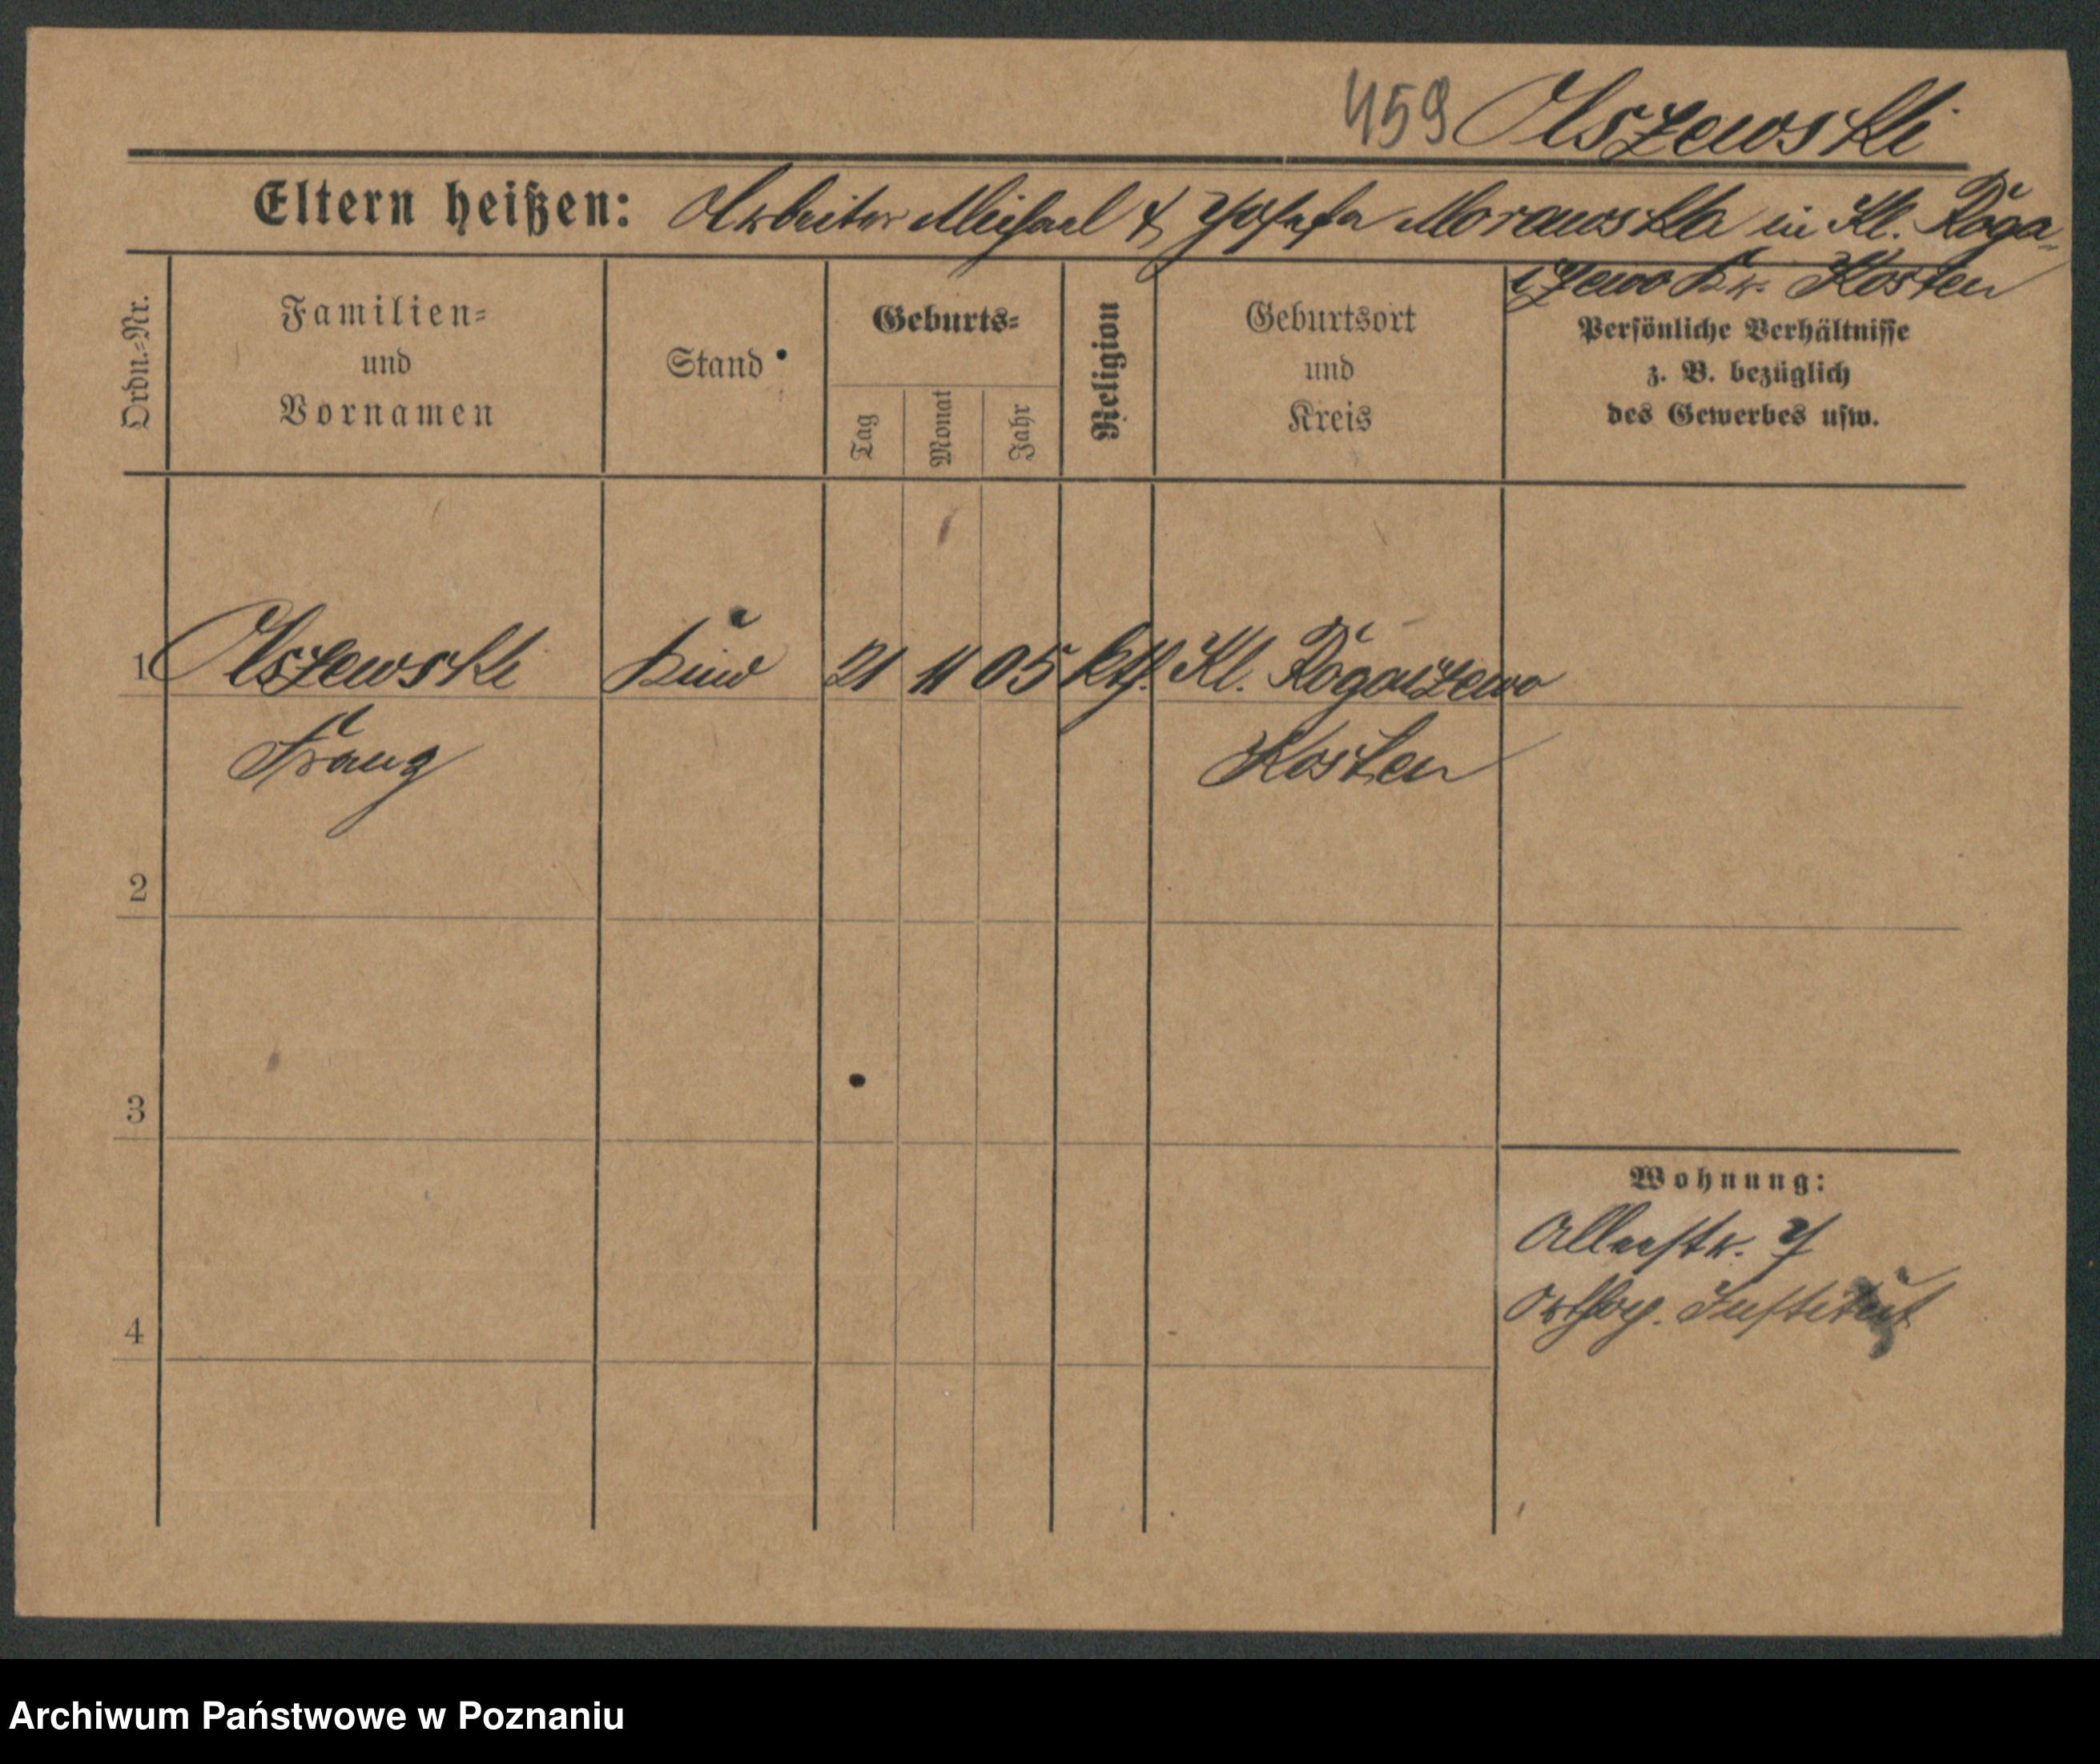 459 Olszewski
Eltern heißen: Arbeiter Michael & Josefa Morawska in Kl. Roga-
czewo Kr. Kosten
Ordn.-Nr.
Familien-
und
Vornamen
Stand
Geburts-
Tag
Monat
Jahr
Religion
Geburtsort
und
Kreis
Persönliche Verhältnisse
z. B. bezüglich
des Gewerbes usw.
1 Olszewski Kind 21 11 05 kth. Kl. Rogaczewo
Franz Kosten
2
3
4
Wohnung:
Alleestr. 7
Orthop. Institut
Archiwum Państwowe w Poznaniu